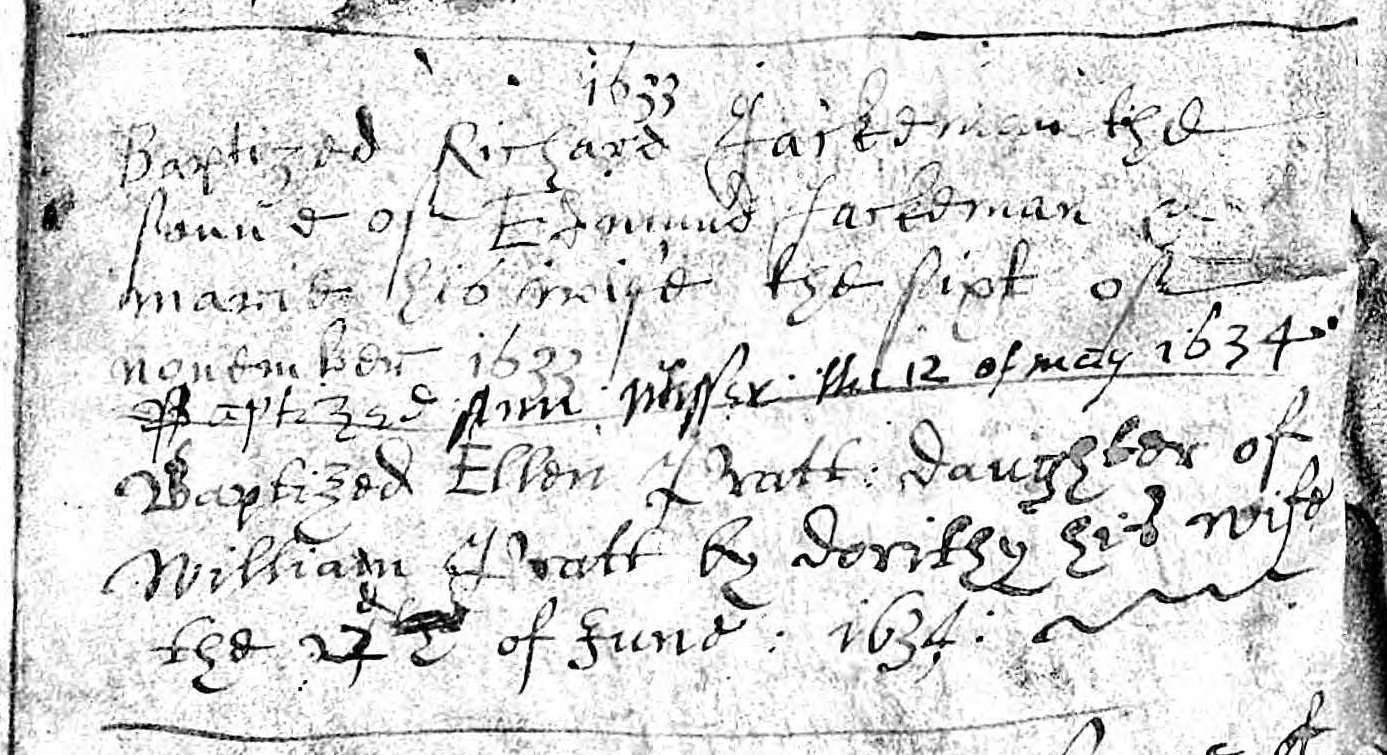 1633
Baptized Richard Jackeman the
sonne of Edmund Jackeman &
marie his wife the sixt of
november 1633
Baptized Ann the 12 of may 1634
Baptized Ellen Pratt: daughter of
William Pratt by dorithy his wife
the of June: 1634: